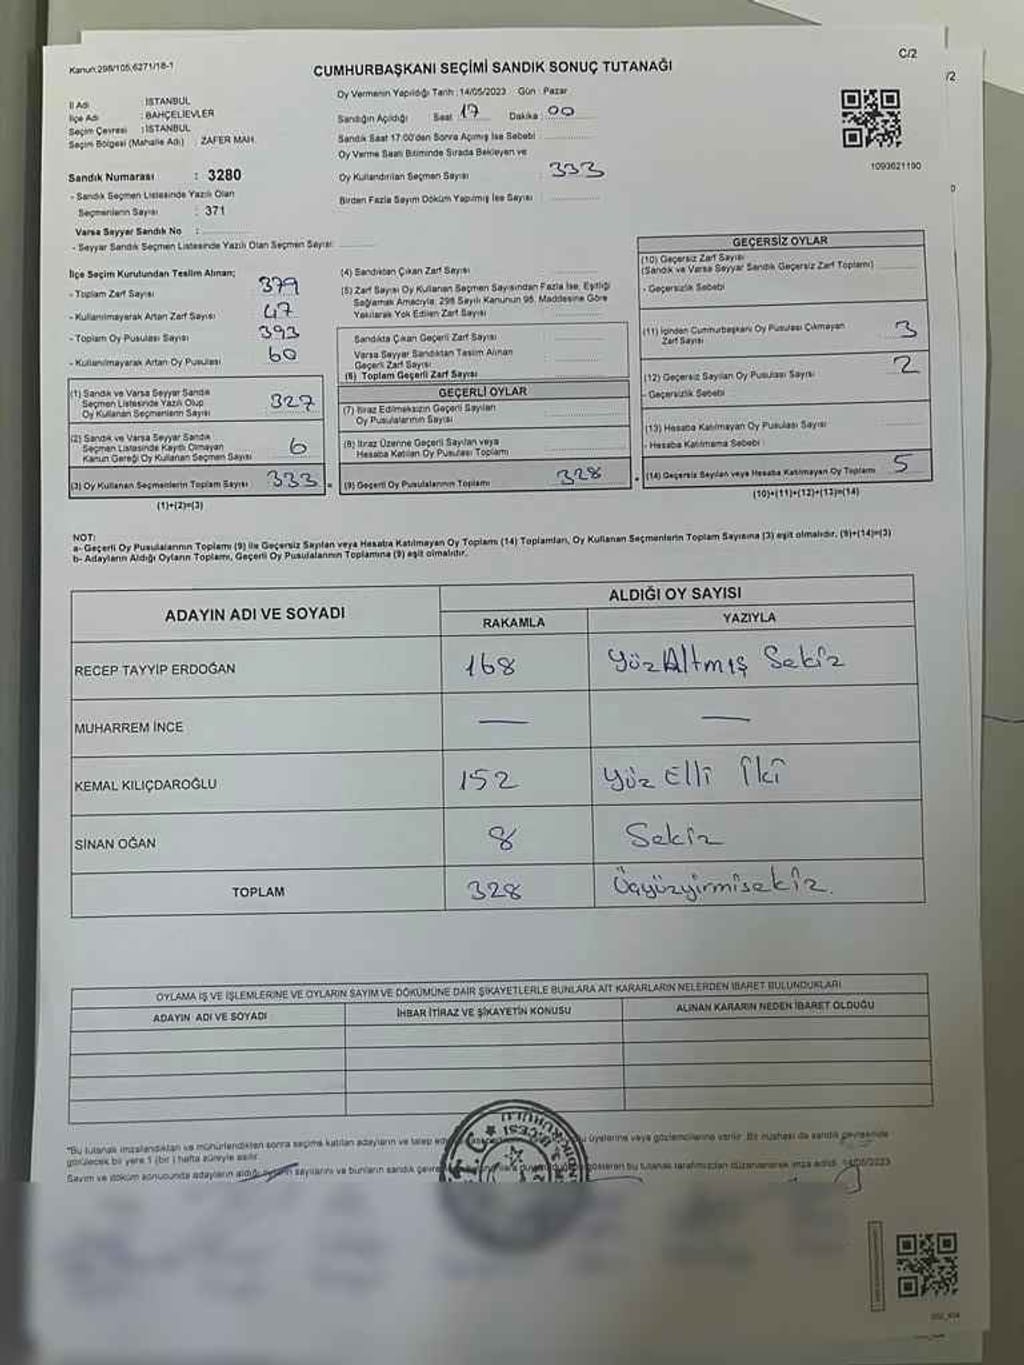 Kanun:298/105,6271/18-1
C/2
/2
CUMHURBAŞKANI SEÇİMİ SANDIK SONUÇ TUTANAĞI
İl Adı : İSTANBUL
İlçe Adı : BAHÇELİEVLER
Seçim Çevresi : İSTANBUL
Seçim Bölgesi (Mahalle Adı) : ZAFER MAH.
Sandık Numarası : 3280
- Sandık Seçmen Listesinde Yazılı Olan
Seçmenlerin Sayısı : 371
Varsa Seyyar Sandık No :
- Seyyar Sandık Seçmen Listesinde Yazılı Olan Seçmen Sayısı:
Oy Vermenin Yapıldığı Tarih :14/05/2023 Gün : Pazar
Sandığın Açıldığı Saat 17 Dakika : 00
Sandık Saat 17:00'den Sonra Açılmış İse Sebebi :
Oy Verme Saati Bitiminde Sırada Bekleyen ve
Oy Kullandırılan Seçmen Sayısı : 333
Birden Fazla Sayım Döküm Yapılmış İse Sayısı :
1093621190
İlçe Seçim Kurulundan Teslim Alınan;
- Toplam Zarf Sayısı 379
- Kullanılmayarak Artan Zarf Sayısı 47
- Toplam Oy Pusulası Sayısı 393
- Kullanılmayarak Artan Oy Pusulası 60
(1) Sandık ve Varsa Seyyar Sandık
Seçmen Listesinde Yazılı Olup
Oy Kullanan Seçmenlerin Sayısı 327
(2) Sandık ve Varsa Seyyar Sandık
Seçmen Listesinde Kayıtlı Olmayan
Kanun Gereği Oy Kullanan Seçmen Sayısı 6
(3) Oy Kullanan Seçmenlerin Toplam Sayısı 333 =
(1)+(2)=(3)
(4) Sandıktan Çıkan Zarf Sayısı
(5) Zarf Sayısı Oy Kullanan Seçmen Sayısından Fazla İse, Eşitliği
Sağlamak Amacıyla; 298 Sayılı Kanunun 98. Maddesine Göre
Yakılarak Yok Edilen Zarf Sayısı
Sandıkta Çıkan Geçerli Zarf Sayısı
Varsa Seyyar Sandıktan Teslim Alınan
Geçerli Zarf Sayısı
(6) Toplam Geçerli Zarf Sayısı
GEÇERLİ OYLAR
(7) İtiraz Edilmeksizin Geçerli Sayılan
Oy Pusulalarının Sayısı
(8) İtiraz Üzerine Geçerli Sayılan veya
Hesaba Katılan Oy Pusulası Toplamı
(9) Geçerli Oy Pusulalarının Toplamı 328
GEÇERSİZ OYLAR
(10) Geçersiz Zarf Sayısı
(Sandık ve Varsa Seyyar Sandık Geçersiz Zarf Toplamı)
- Geçersizlik Sebebi
(11) İçinden Cumhurbaşkanı Oy Pusulası Çıkmayan
Zarf Sayısı 3
(12) Geçersiz Sayılan Oy Pusulası Sayısı 2
- Geçersizlik Sebebi
(13) Hesaba Katılmayan Oy Pusulası Sayısı
- Hesaba Katılmama Sebebi :
(14) Geçersiz Sayılan veya Hesaba Katılmayan Oy Toplamı 5
(10)+(11)+(12)+(13)=(14)
NOT:
a- Geçerli Oy Pusulalarının Toplamı (9) ile Geçersiz Sayılan veya Hesaba Katılmayan Oy Toplamı (14) Toplamları, Oy Kullanan Seçmenlerin Toplam Sayısına (3) eşit olmalıdır, (9)+(14)=(3)
b- Adayların Aldığı Oyların Toplamı, Geçerli Oy Pusulalarının Toplamına (9) eşit olmalıdır.
ADAYIN ADI VE SOYADI
ALDIĞI OY SAYISI
RAKAMLA YAZIYLA
RECEP TAYYİP ERDOĞAN 168 YüzAltmış Sekiz
MUHARREM İNCE — —
KEMAL KILIÇDAROĞLU 152 Yüz Elli İki
SİNAN OĞAN 8 Sekiz
TOPLAM 328 Üçyüzyirmisekiz.
OYLAMA İŞ VE İŞLEMLERİNE VE OYLARIN SAYIM VE DÖKÜMÜNE DAİR ŞİKAYETLERLE BUNLARA AİT KARARLARIN NELERDEN İBARET BULUNDUKLARI
ADAYIN ADI VE SOYADI İHBAR İTİRAZ VE ŞİKAYETİN KONUSU ALINAN KARARIN NEDEN İBARET OLDUĞU
*Bu tutanak imzalandıktan ve mühürlendikten sonra seçime katılan adayların ve talep üyelerine veya gözlemcilerine verilir. Bir nüshası da sandık çevresinde
görülecek bir yere 1 (bir) hafta süreyle asılır.
Sayım ve döküm sonucunda adayların aldığı sayılarını ve bunların sandık gösteren bu tutanak tarafımızdan düzenlenerek imza edildi. 14/05/2023